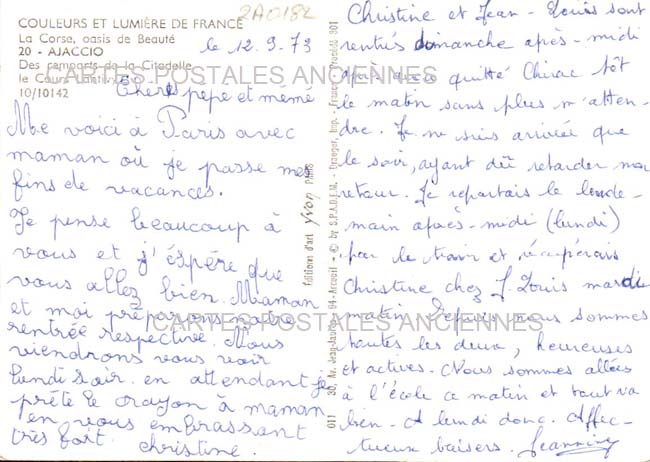 COULEURS ET LUMIÈRE DE FRANCE
La Corse, oasis de Beauté
20 - AJACCIO
Des remparts de la Citadelle
le Cours
10/10142
2A0182
le 12.9.73
CARTES POSTALES ANCIENNES
Chers pepe et mémé
Me voici à Paris avec
maman où je passe mes
fins de vacances.
Je pense beaucoup à
vous et j'éspère que
vous allez bien. Maman
et moi préparons notre
rentrée respective. Nous
viendrons vous voir
lundi soir. en attendant je
prête le crayon à maman
en vous embrassant
très fort. christine.
Editions d'art yvon PARIS
011 30, Av. Jean-Jaurès - 94-Arcueil - © by S.P.A.D.E.M. Draeger, Imp. - France 301
Christine et Jean-Louis sont
rentrés dimanche après-midi
après avoir quitté Chirac tôt
le matin sans plus m'atten-
dre. Je ne suis arrivée que
le soir, ayant dû retarder mon
retour. Je repartais le lende-
main après-midi (lundi)
par le train et récupérais
Christine chez J. Louis mardi
matin. Depuis nous sommes
toutes les deux, heureuses
et actives. Nous sommes allées
à l'école ce matin et tout va
bien. A lundi donc. Affec-
tueux baisers. Jeannine
CARTES POSTALES ANCIENNES